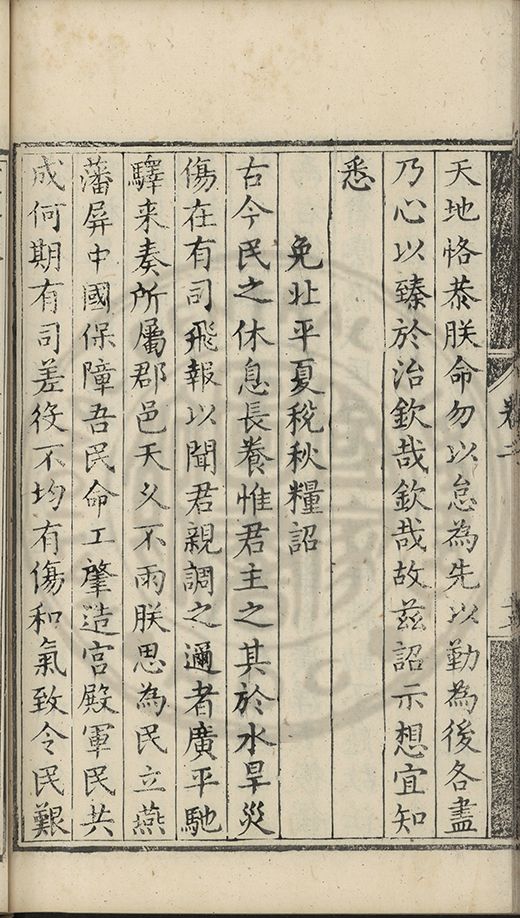 天地恪恭朕命勿以怠為先以勤為後各盡
乃心以臻於治欽哉欽哉故茲詔示想宜知
悉
免北平夏稅秋糧詔
古今民之休息長養惟君主之其於水旱災
傷在有司飛報以聞君親調之邇者廣平馳
驛来奏所屬郡邑天久不雨朕思為民立燕
藩屏中國保障吾民命工肇造宮殿軍民共
成何期有司差役不均有傷和氣致令民艱